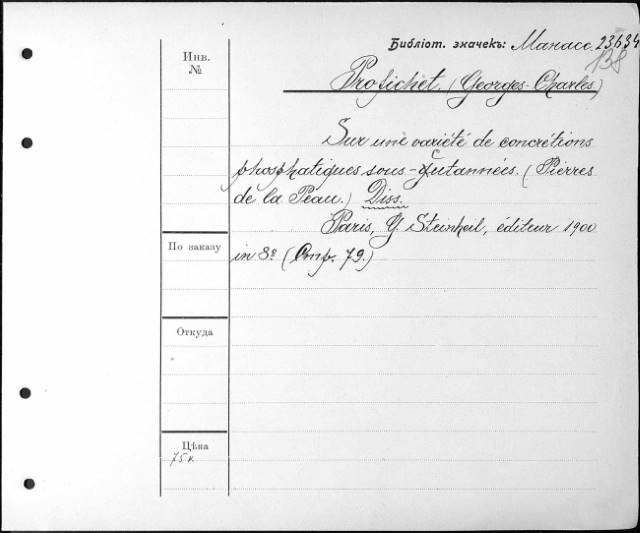 Библіот. значекъ: Манасс. 23634
Инв.
№
Profichet. (Georges-Charles)
Sur une variété de concrétions
phosphatiques sous-cutannées. (Pierres
de la Peau.) Diss.
Paris, G. Steinheil, éditeur 1900
По заказу
in 8º (Стр. 79.)
Откуда
Цѣна
75 к